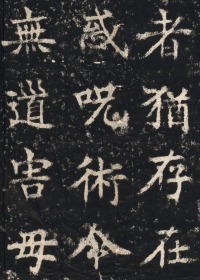 者猶存在
惑呪術令
無道害毋